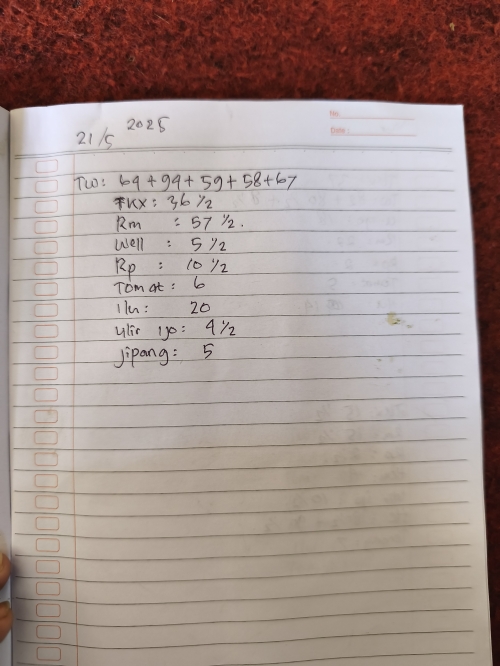 No:
Date:
21/5 2025
TW: 69 + 94 + 59 + 58 + 67
TKX : 36 1/2
Rm : 57 1/2.
Well : 5 1/2
Rp : 10 1/2
Tomat : 6
20
ulir ijo : 4 1/2
jipang : 5